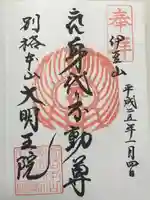 奉拝
伊豆山
平成二五年一月四日
身代不動尊
別格本山大明王院